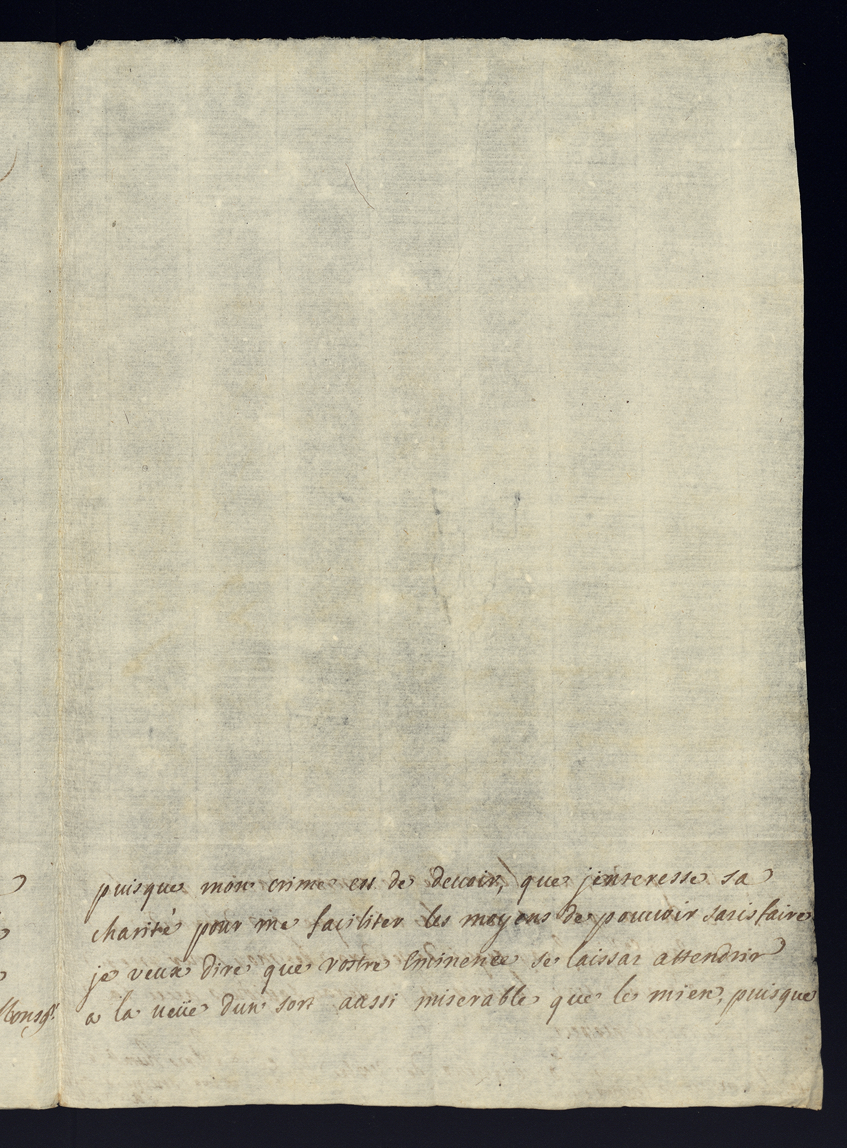 puisque mon crime est de deuoir, que j'interesse sa
charité pour me faciliter les moyens de pouuoir satisfaire
je veux dire que vostre Eminence se laissat attendrir
a la veüe dun sort aussi miserable que le mien, puisque
Monsgr